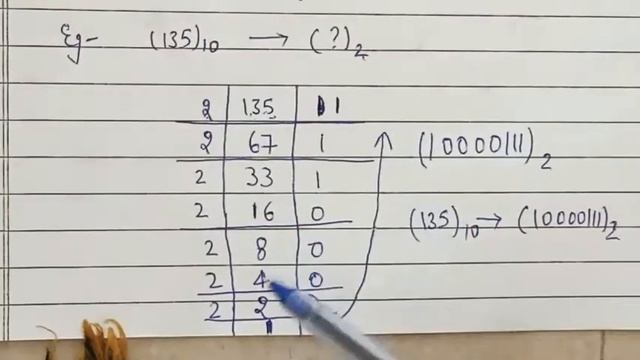 Eg- (135)10 → (?)2
2 135 1
2 67 1
2 33 1
2 16 0
2 8 0
2 4 0
2 2
1
(10000111)2
(135)10 → (10000111)2